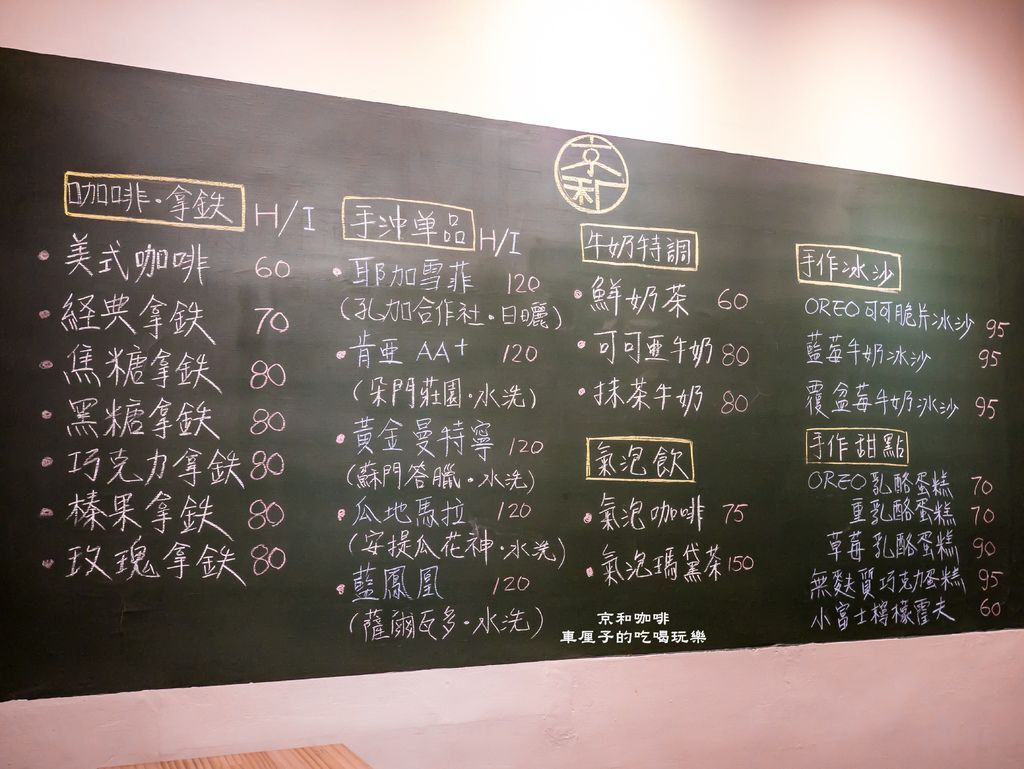 京和
咖啡·拿鉄 H/I
美式咖啡 60
経典拿鉄 70
焦糖拿鉄 80
黑糖拿鉄 80
巧克力拿鉄 80
榛果拿鉄 80
玫瑰拿鉄 80
手沖單品 H/I
耶加雪菲 120
(孔加合作社·日曬)
肯亜 AA+ 120
(朵門莊園·水洗)
黃金曼特寧 120
(蘇門答臘·水洗)
瓜地馬拉 120
(安提瓜花神·水洗)
藍鳳凰 120
(薩爾瓦多·水洗)
牛奶特調
鮮奶茶 60
可可亜牛奶 80
抹茶牛奶 80
氣泡飲
氣泡咖啡 75
氣泡瑪黛茶 150
手作冰沙
OREO可可脆片冰沙 95
藍莓牛奶冰沙 95
覆盆莓牛奶冰沙 95
手作甜點
OREO乳酪蛋糕 70
重乳酪蛋糕 70
草莓乳酪蛋糕 90
無麩質巧克力蛋糕 95
小富士檸檬雷夫 60
京和咖啡
車厘子的吃喝玩樂